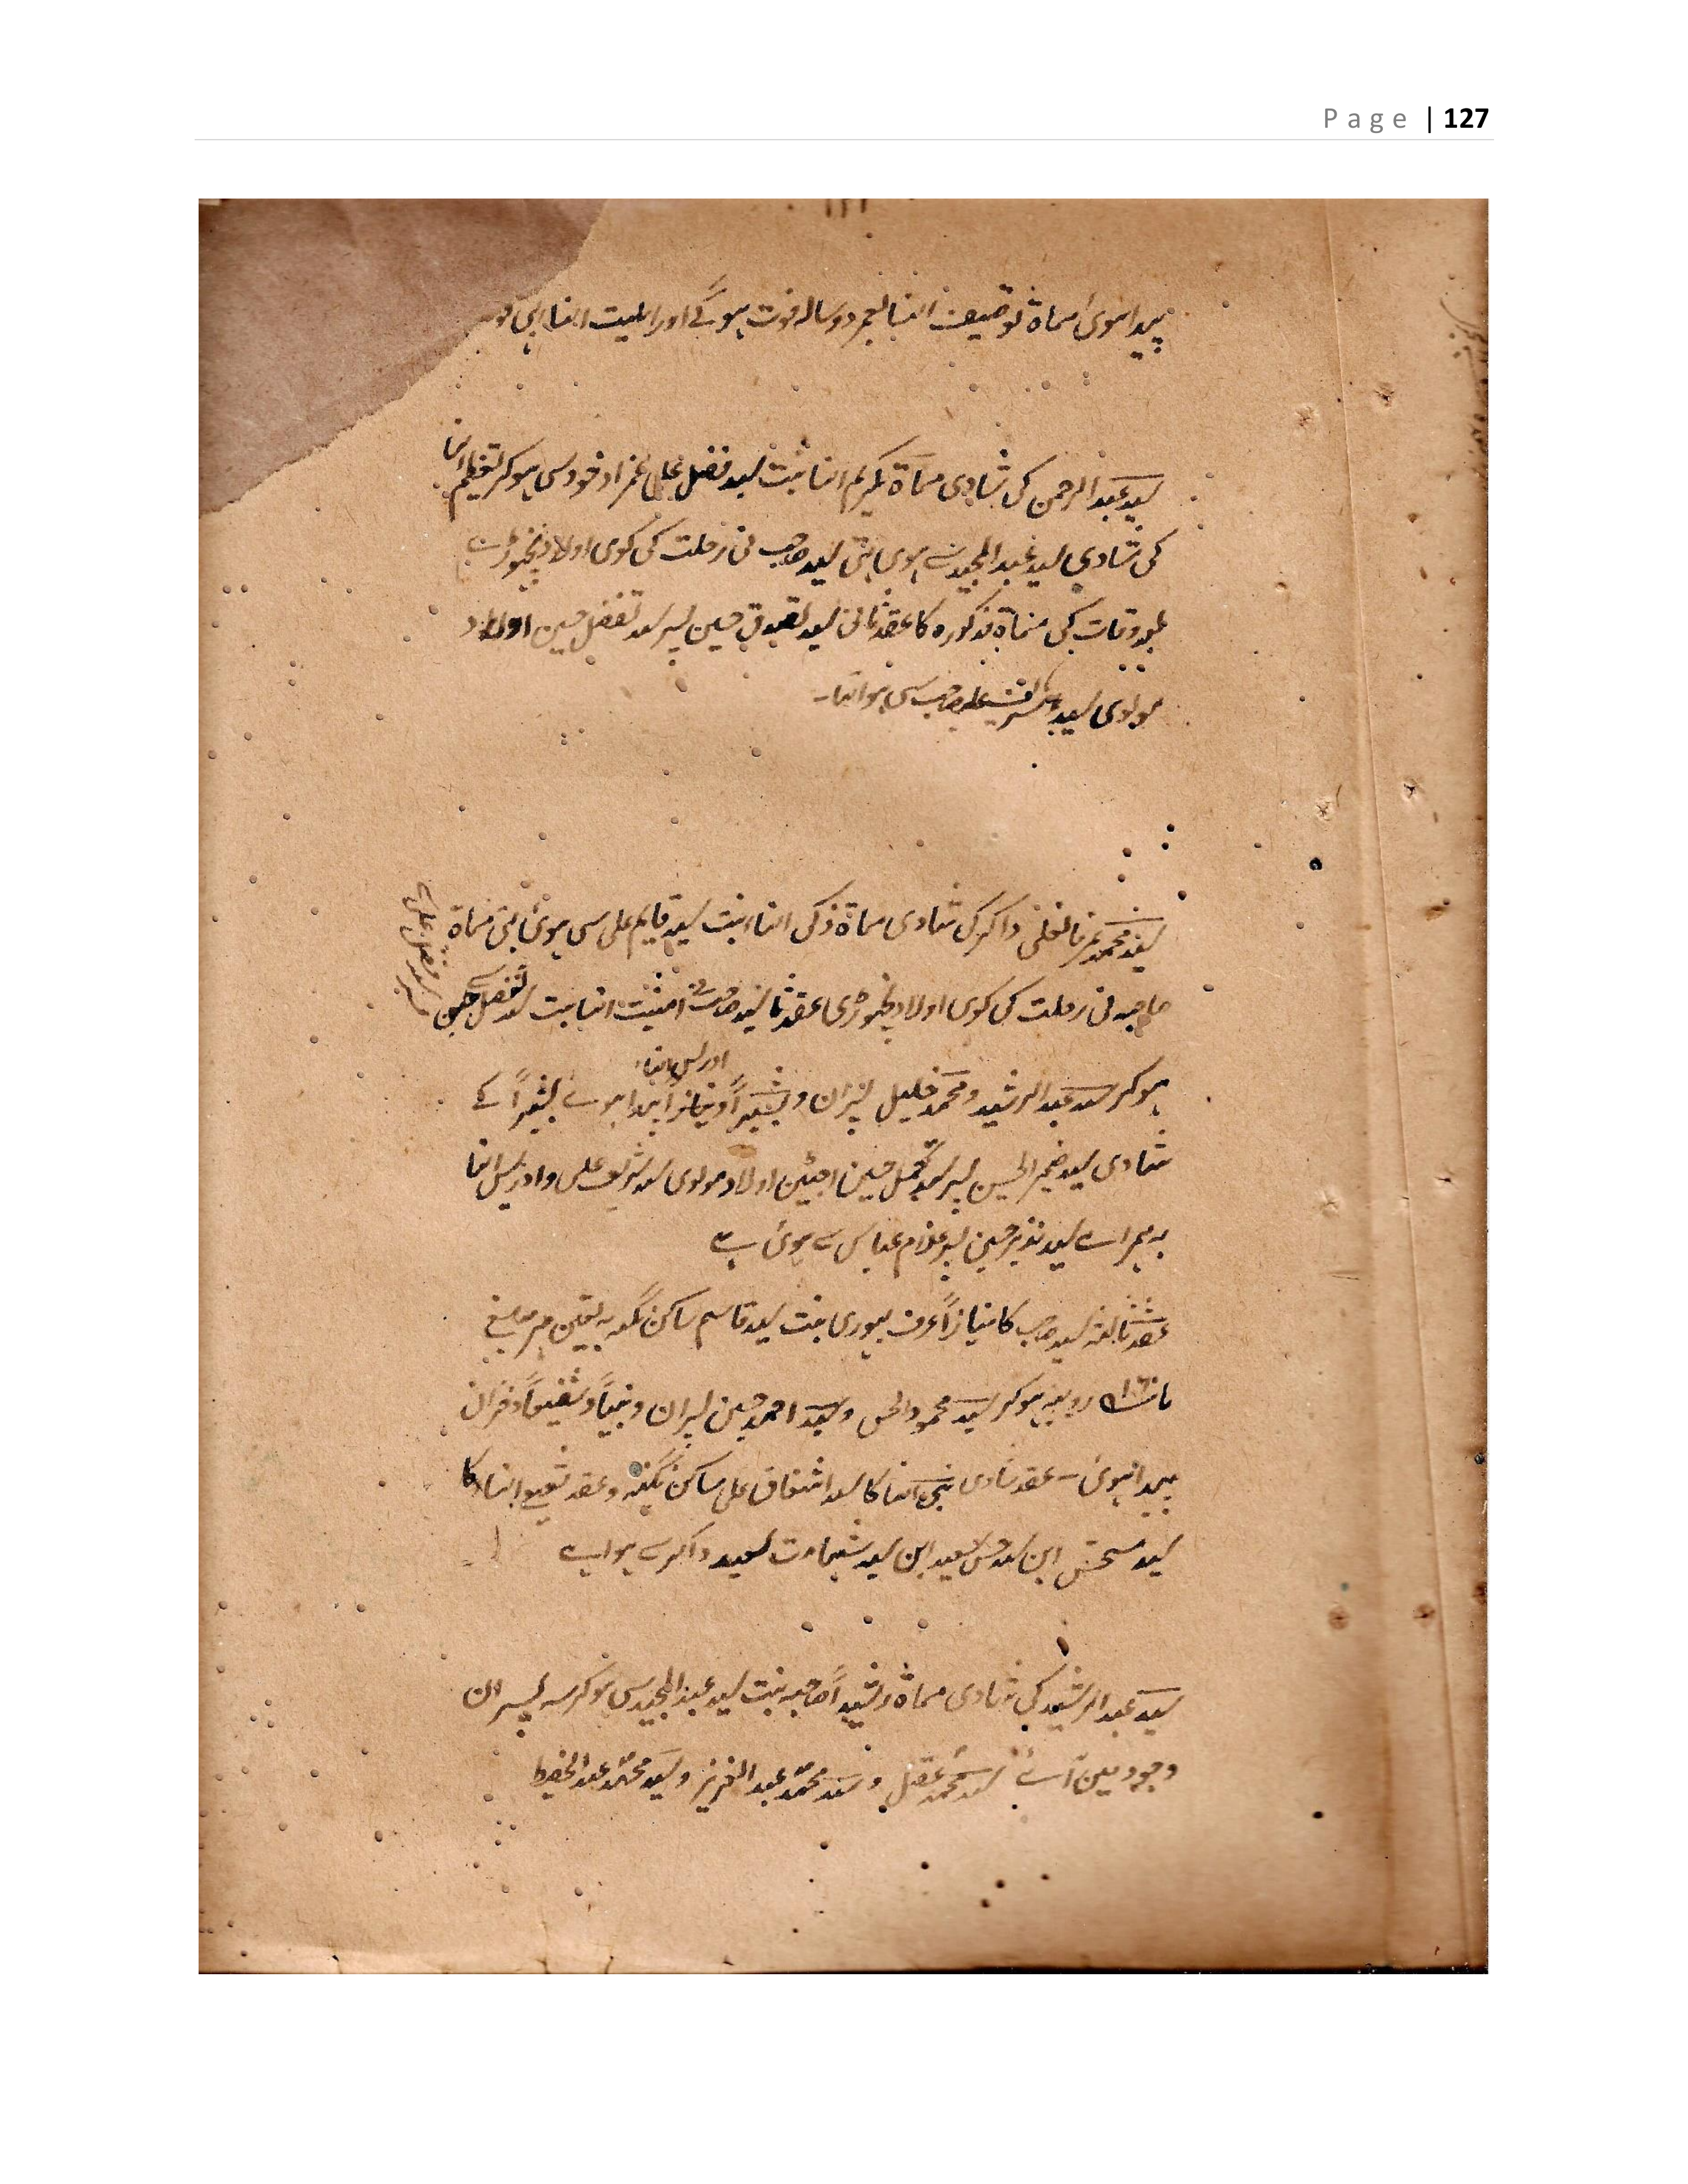 Page | 127
پیدا ہوئ مسماۃ توصیف النسا بعمر دو سالہ فوت ہو گے اور اہلیت النسا ابہی
سید عبد الرحمن کی شادی مسماۃ تکریم النسا بنت سید فضل علی عمزاد خود سی ہوکر تعظیم النسا
کی شادی سید عبد المجید سے ہوی تہی سید صاحب نی رحلت کی کوی اولاد نچہوڑی
بعد وفات کی مسماۃ مذکورہ کا عقد ثانی سید تصدق حسین پسر سید تفضل حسین اولاد
مولوی سید شرف علیصاحب سی ہوا تہا۔
سید محمد عمر ذاکر کی شادی مسماۃ ذکی النسا بنت سید قایم علی سی ہوئ تہی مسماۃ
صاحبہ نی رحلت کی کوی اولاد نچہوڑی عقد ثانی سید صاحب امنیت النسا بنت سید تفضل حسین
پسر سید فضل علی سے
اور یس النساء
ہوکر سید عبد الرشید و محمد خلیل پسران و بشیراً و نیازاً پیدا ہوے بشیراً کے
شادی سید ضمیر الحسن پسر سید تجمل حسین اولاد مولوی سید شریف علی و ادریس النسا
بہ ہمراے سید نذیر حسین پسر غلام عباس سے ہوئ ہے
عقد ثالثہ سید صاحب کا نیازاً عرف بہوری بنت سید قاسم ساکن نگینہ بہ تعین مہر مبلغ
روپیہ ہوکر سید محمود الحسن و سید احمد حسین پسران و نبیاً و شفیعاً دختران
پیدا ہوئ - عقد شادی نبی النسا کا سید اشفاق علی ساکن نگینہ و عقد شفیع النسا کا
سید مستحسن ابن سید حسن سعید ابن سید شہامت سعید ذاکر سے ہوا ہے
سید عبد الرشید کی شادی مسماۃ رشیداً صاحبہ بنت سید عبد المجید سی ہوکر سہ پسران
وجود مین آے سید محمد عقیل و سید محمد عبد العزیز و سید محمد عبد الحفیظ